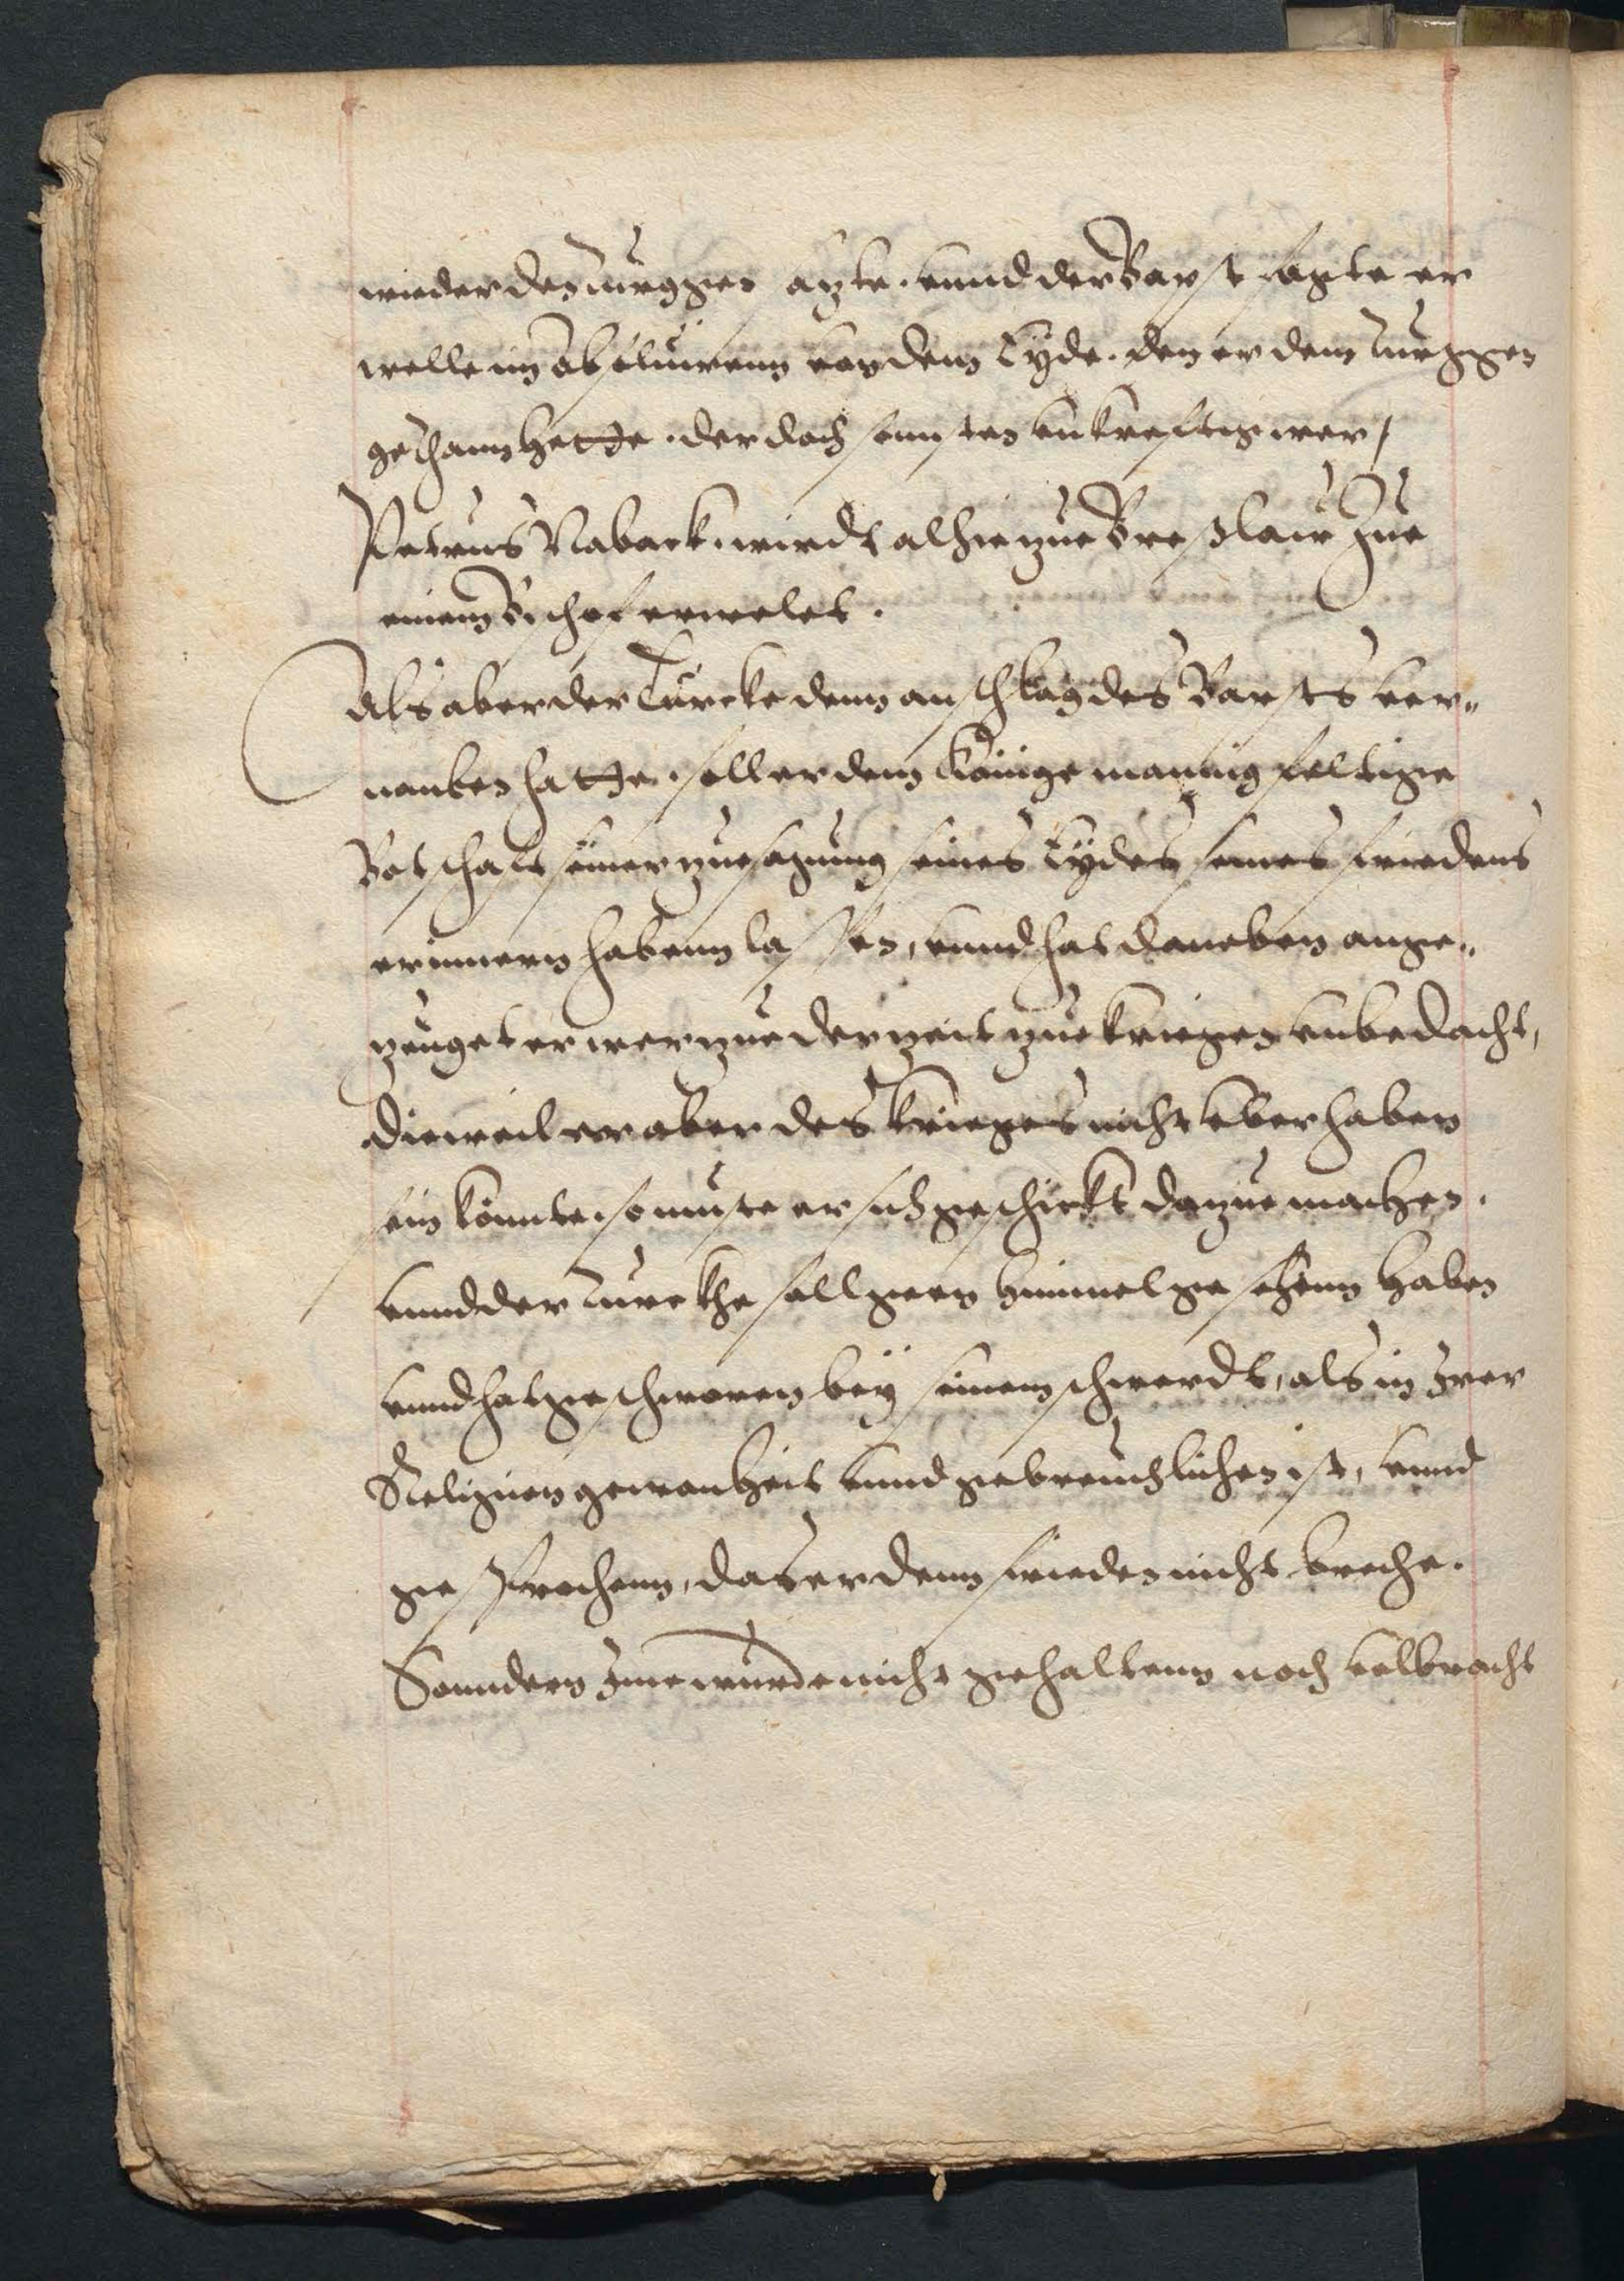 wieder den Turggen zyte. vnnd der Bapst sagte er
welle in absoluirenn von dem Eyde. den er dem Turggen
gethann hette. der doch sonnsten vnkrefftig wer/
Petrus Naback. wirdt alhie zue Breßlaw Zue
einem Bischof erwelet.
Als aber der Türcke denn anschlag des Bapsts ver„
nomben hatte. soll er dem Könige mannigfeltige
Botschafft seiner zuesagung seines Eydes seines friedens
erinnern habenn lassen, vnnd hat daneben ange„
zeuget er wer zue der zeit zue kriegen vnbedacht,
Dieweil er aber des krieges nicht vberhaben
sein könnte. so muste er sich geschickt dazue machen.
vnnd der Turckhe soll gegen himmel gesehenn haben
vnnd hat geschworen bey seinem schwerdt, als in Irer
Religion gewonheit vnnd gebreuchlichen ist, vnnd
gesprochenn, das er denn frieden nicht breche.
Sonndern Ime wurde nicht gehaltenn noch volbracht